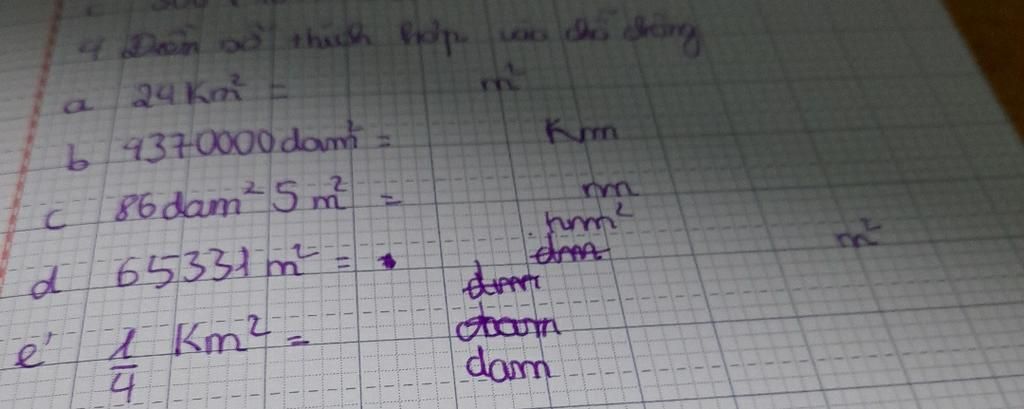 4 Điền số thích hợp vào chỗ chấm
a 24 Km² = m²
b 9370000 dam² = Km
c 86 dam² 5 m² = m
d 65331 m² = hm² m²
e 1/4 Km² = dam